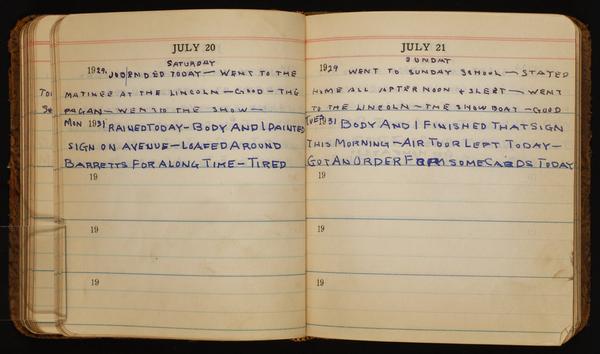 JULY 20
SATURDAY
1929. JOB ENDED TODAY — WENT TO THE
MATINEE AT THE LINCOLN — GOOD — THE
PAGAN — WENT TO THE SHOW —
MON 1931 RAINED TODAY — BODY AND I PAINTED
SIGN ON AVENUE — LOAFED AROUND
BARRETTS FOR A LONG TIME — TIRED
19
19
19
JULY 21
SUNDAY
1929 WENT TO SUNDAY SCHOOL — STAYED
HOME ALL AFTERNOON & SLEPT — WENT
TO THE LINCOLN — THE SHOW BOAT — GOOD
TUE 1931 BODY AND I FINISHED THAT SIGN
THIS MORNING — AIR TOUR LEFT TODAY —
GOT AN ORDER FOR SOME CARDS TODAY
19
19
19